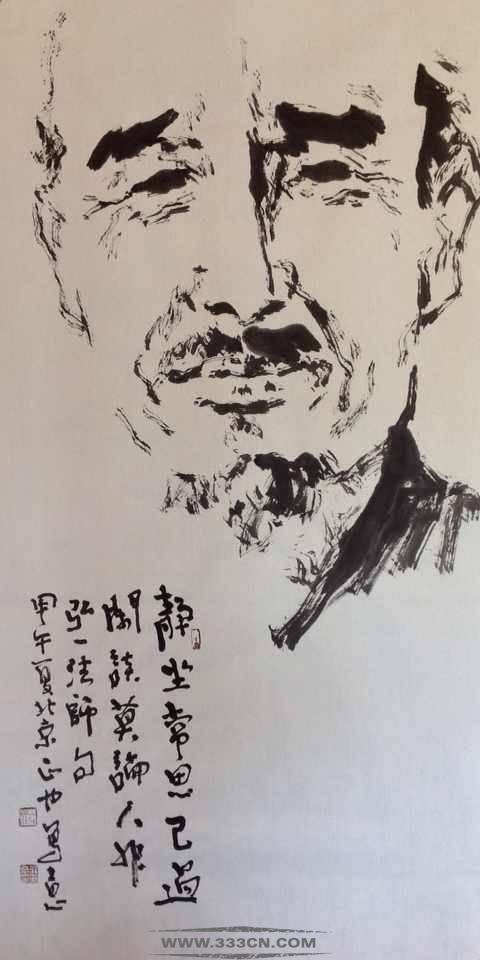 靜坐常思己過
閑談莫論人非
弘一法師句
甲午夏北京
WWW.333CN.COM